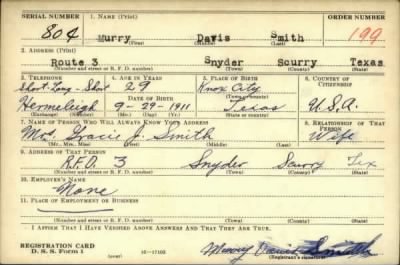 SERIAL NUMBER 1. NAME (Print) ORDER NUMBER
804 Murry Davis Smith 199
(First) (Middle) (Last)
2. ADDRESS (Print)
Route 3 Snyder Scurry Texas
(Number and street or R. F. D. number) (Town) (County) (State)
3. TELEPHONE 4. AGE IN YEARS 5. PLACE OF BIRTH 6. COUNTRY OF CITIZENSHIP
Short-Long-Short 29 Knox City
DATE OF BIRTH (Town or county)
Hermeleigh 9-29-1911 Texas U.S.A.
(Exchange) (Number) (Mo.) (Day) (Yr.) (State or country)
7. NAME OF PERSON WHO WILL ALWAYS KNOW YOUR ADDRESS 8. RELATIONSHIP OF THAT PERSON
Mrs. Gracie J. Smith Wife
(Mr., Mrs., Miss) (First) (Middle) (Last)
9. ADDRESS OF THAT PERSON
R.F.D. 3 Snyder Scurry Tex
(Number and street or R. F. D. number) (Town) (County) (State)
10. EMPLOYER'S NAME
None
11. PLACE OF EMPLOYMENT OR BUSINESS
(Number and street or R. F. D. number) (Town) (County) (State)
I AFFIRM THAT I HAVE VERIFIED ABOVE ANSWERS AND THAT THEY ARE TRUE.
REGISTRATION CARD
D. S. S. FORM 1 (over) 16-17105 Murry Davis Smith
(Registrant's signature)